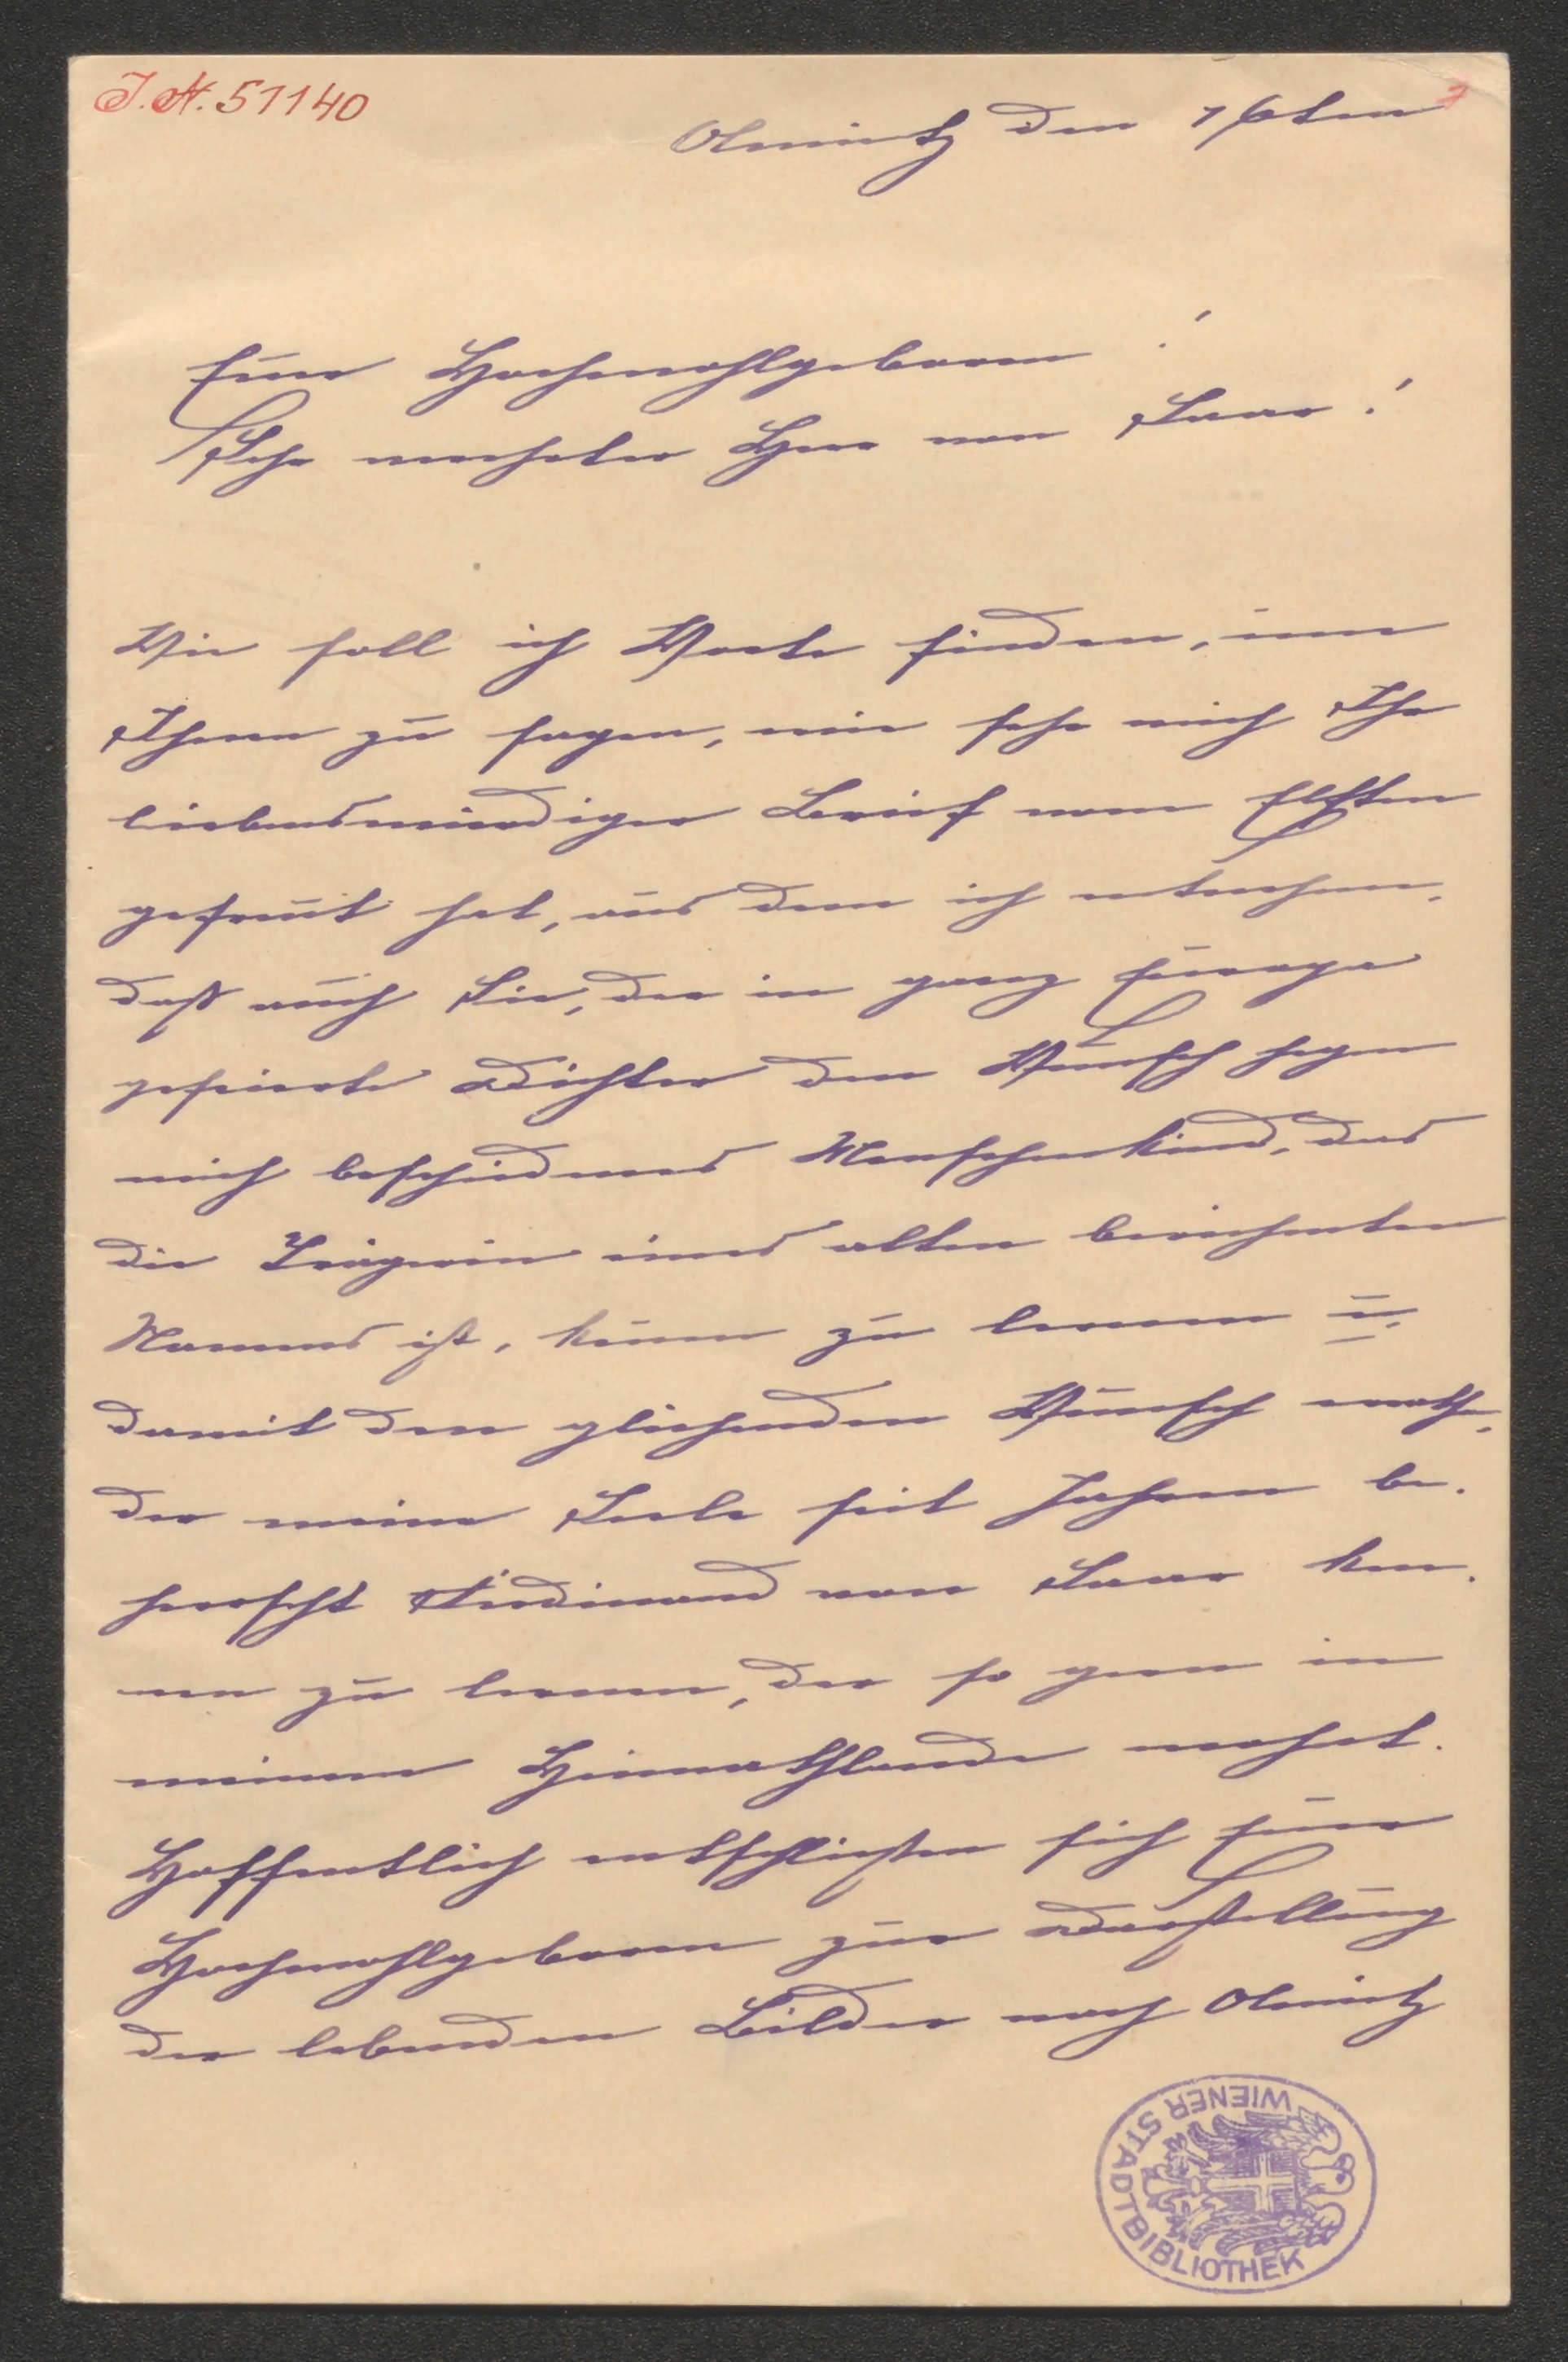 I.N. 51140
Olmütz den 16ten
7
Euer Hochwohlgeboren!
Sehr verehrter Herr von Saar!
Wie soll ich Worte finden, um
Ihnen zu sagen, wie sehr mich Ihr
liebenswürdiger Brief vom Elften
gefreut hat, aus dem ich entnehme,
daß auch Sie, der in ganz Europa
gefeierte Dichter den Wunsch hegen
mich bescheidenes Menschenkind, das
die Trägerin eines alten berühmten
Namens ist, kennen zu lernen u.
damit den glühenden Wunsch
der meine Seele seit Jahren be-
herrscht Ferdinand von Saar ken-
nen zu lernen, der so gern in
meinem Heimathlande
Hoffentlich entschließen sich Euer
Hochwohlgeboren zur Darstellung
der lebenden Bilder nach Olmütz
WIENER STADTBIBLIOTHEK